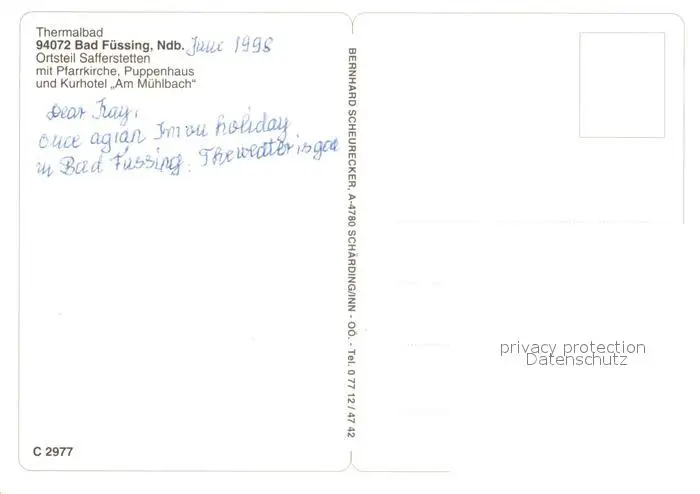 Thermalbad
94072 Bad Füssing, Ndb. June 1998
Ortsteil Safferstetten
mit Pfarrkirche, Puppenhaus
und Kurhotel „Am Mühlbach“
Dear Kay,
once agian Im on holiday
in Bad Füssing. The wetter is goa
BERNHARD SCHEURECKER, A-4780 SCHÄRDING/INN - OÖ. - Tel. 0 77 12 / 47 42
privacy protection
Datenschutz
C 2977